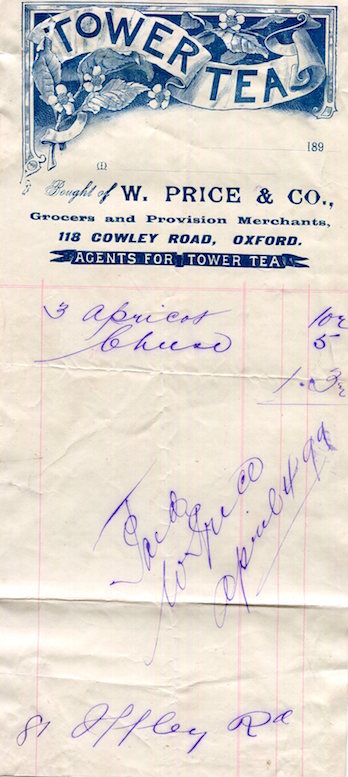 TOWER
TEA
189
(1)
Bought of W. PRICE & CO.,
Grocers and Provision Merchants,
118 COWLEY ROAD, OXFORD.
AGENTS FOR TOWER TEA
3 apricot 10½
Cheese 5
1. 3½
Paid
W Price
April 4 99
81 Iffley Rd